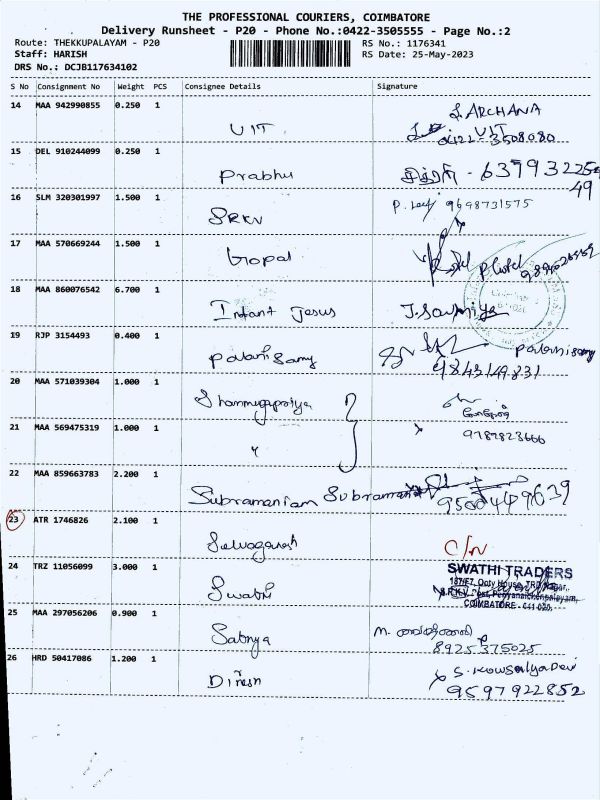 THE PROFESSIONAL COURIERS, COIMBATORE
Delivery Runsheet - P20 - Phone No.:0422-3505555 - Page No.:2
Route: THEKKUPALAYAM - P20 RS No.: 1176341
Staff: HARISH RS Date: 25-May-2023
DRS No.: DCJB117634102
S No Consignment No Weight PCS Consignee Details Signature
14 MAA 942990855 0.250 1 UIT S. ARCHANA
UIT
0422-3508080
15 DEL 910244099 0.250 1 Prabhu - 6379932254
49
16 SLM 320301997 1.500 1 SRKV P. 9698731575
17 MAA 570669244 1.500 1 Gopal
18 MAA 860076542 6.700 1 Infant Jesus J. Sowmiya
19 RJP 3154493 0.400 1 Palanisamy Palanisamy
9843149831
20 MAA 571039304 1.000 1 Shanmugapriya
21 MAA 569475319 1.000 1 " 9787823666
22 MAA 859663783 2.200 1 Subramaniam Subramani
9500449639
23 ATR 1746826 2.100 1 Selvaganesh C/N
24 TRZ 11056099 3.000 1 Swathi SWATHI TRADERS
187/F7, Ooty House, TRD Nagar,
S.R.K.V. Post, Periyanaickenpalayam,
COIMBATORE - 641 020.
25 MAA 297056206 0.900 1 Sabnya M.
8925375025
26 HRD 50417086 1.200 1 Dinesh S. Kowsalya Devi
9597922852